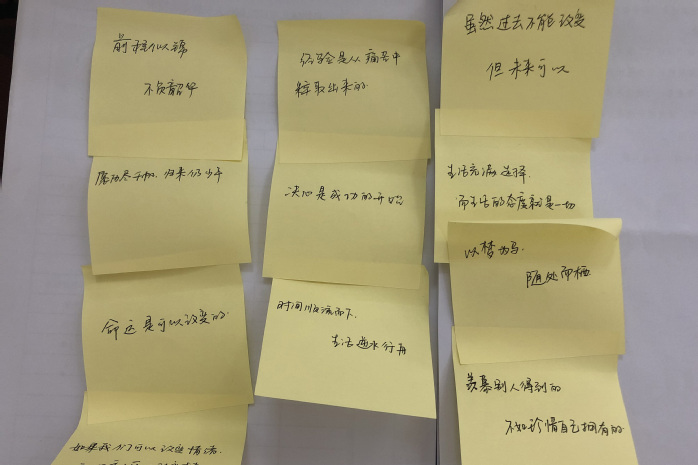 前程似锦
不负韶华
愿历尽千帆、归来仍少年
命运是可以改变的
如果我们可以改变情绪.
经验是从痛苦中
粹取出来的
决心是成功的开始
时间顺流而下.
生活逆水行舟
虽然过去不能改变
但未来可以
生活充满选择
而生活的态度就是一切
以梦为马
随处而栖
羡慕别人得到的
不如珍惜自己拥有的